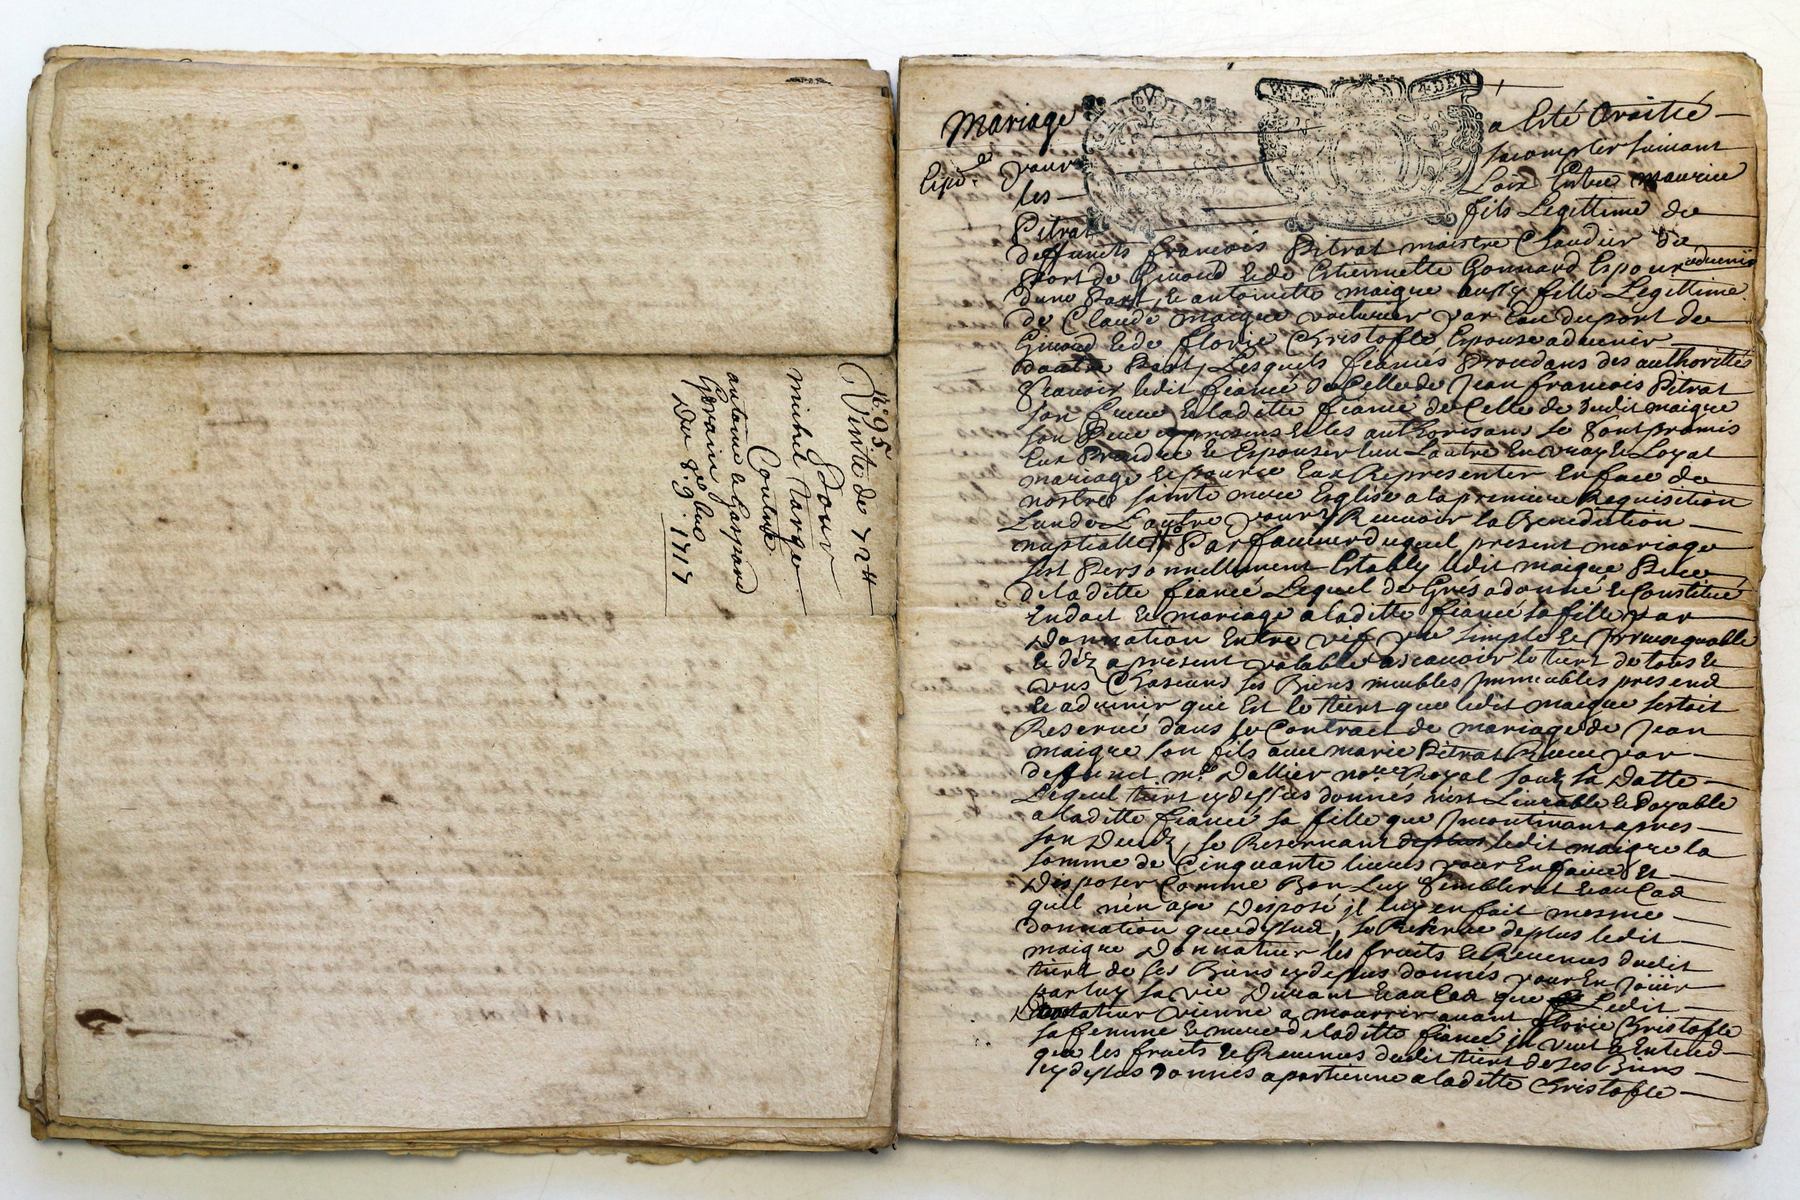 N.° 95
Vinte de 72 tt
pour
michel Varge
Contre
antoine & Gaspard
Gorain
Du 8. 9.bre 1717
4. DEN
Mariage
Expd.e
pour
les
Pitrat
a Esté traitté
sacompter suivant
Loix Entre maurice
fils Legittime de
deffuncts francois Pitrat maistre Chaudier du
Port de Givord & de Estiennette Gonnard Espoux advenir
dune Part, & antoinette maigre aussy fille Legittime
de Claude maigre voiturier par Eau du port de
Givord & de florie Christofle Espouse advenir
dautre Part, Lesquels fiancés Procedans des authorités
sçavoir ledit fiancé de Celle de Jean francois Pitrat
son & laditte fiancé de Celle dudit maigre
son Pere presens & les authorisans se sont promis
Eux Prendre & Espouser lun Lautre En vray & Loyal
mariage & pource Eux Representer En face de
nostre sainte mere Eglise a la premiere Requisition
Lun de Lautre pour y Recevoir la Benediction
nuptialle, En Parfaveur duquel present mariage
sest Personnellement Estably ledit maigre Pere
de laditte fiancé Lequel de Gré a donné & Constitué
En dot & mariage a laditte fiancé sa fille par
Donnation Entre vif pure simple & Irrevoquable
& déz a present valable ascavoir le tiers de tous &
uns Chascuns ses Biens meubles Immeubles presend
& advenir que Est le tiers que ledit maigre sestoit
Reservé dans le Contract de mariage de Jean
maigre son fils avec marie Pitrat Receu par
deffunct m.e Dallier no.re Royal souz sa Datte
Lequel tiers cy dessus donnés n'est Livrable & Payable
a laditte fiancé sa fille que Incontinant apres
son Decéz, se Reservant deplus ledit maigre la
somme de Cinquante livres pour En faire Et
Disposer Comme Bon Luy semblerat & au Cas
quil n'en aye Desposé il luy en fait mesme
donnation que dessus, se Reserve deplus ledit
maigre Donnateur les fruits & Revenus dudit
tiers de ses Biens cy dessus donnés pour En Jouir
par luy sa vie Durant & au Cas que Ledit
Donnateur vienne a mourrir avant florie Christofle
sa femme & mere de laditte fiancé il veut & Entend
que les fruits & Revenus dudit tiers de ses Biens
cy dessus Donnés apartienne a laditte Christofle